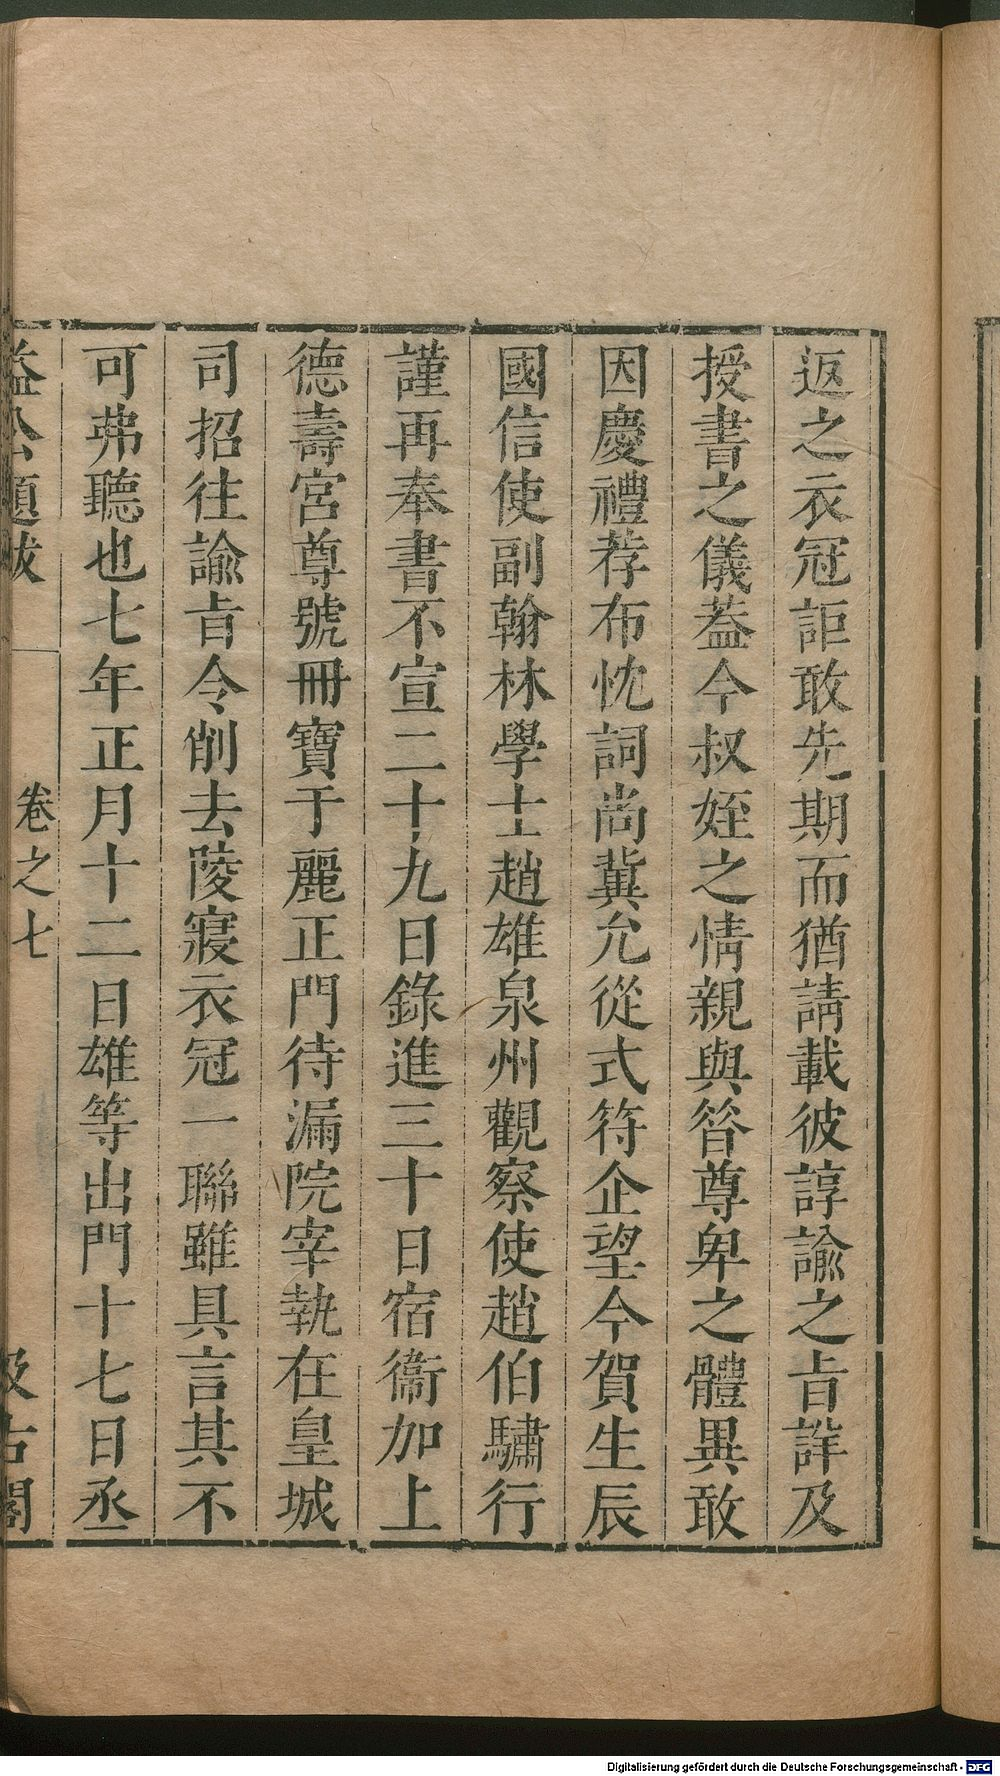 返之衣冠詎敢先期而猶請載彼諄諭之㫖詳及
授書之儀葢今叔姪之情親與昝尊卑之體異敢
因慶禮荐布忱詞尚冀允從式符企望今賀生辰
國信使副翰林學士趙雄泉州觀察使趙伯驌行
謹再奉書不宣二十九日錄進三十日宿衞加上
德壽宮尊號冊寶于麗正門待漏院宰執在皇城
司招往諭㫖令削去陵寢衣冠一聯雖具言其不
可弗聽也七年正月十二日雄等出門十七日丞
益公題跋 卷之七 汲古閣
Digitalisierung gefördert durch die Deutsche Forschungsgemeinschaft - DFG